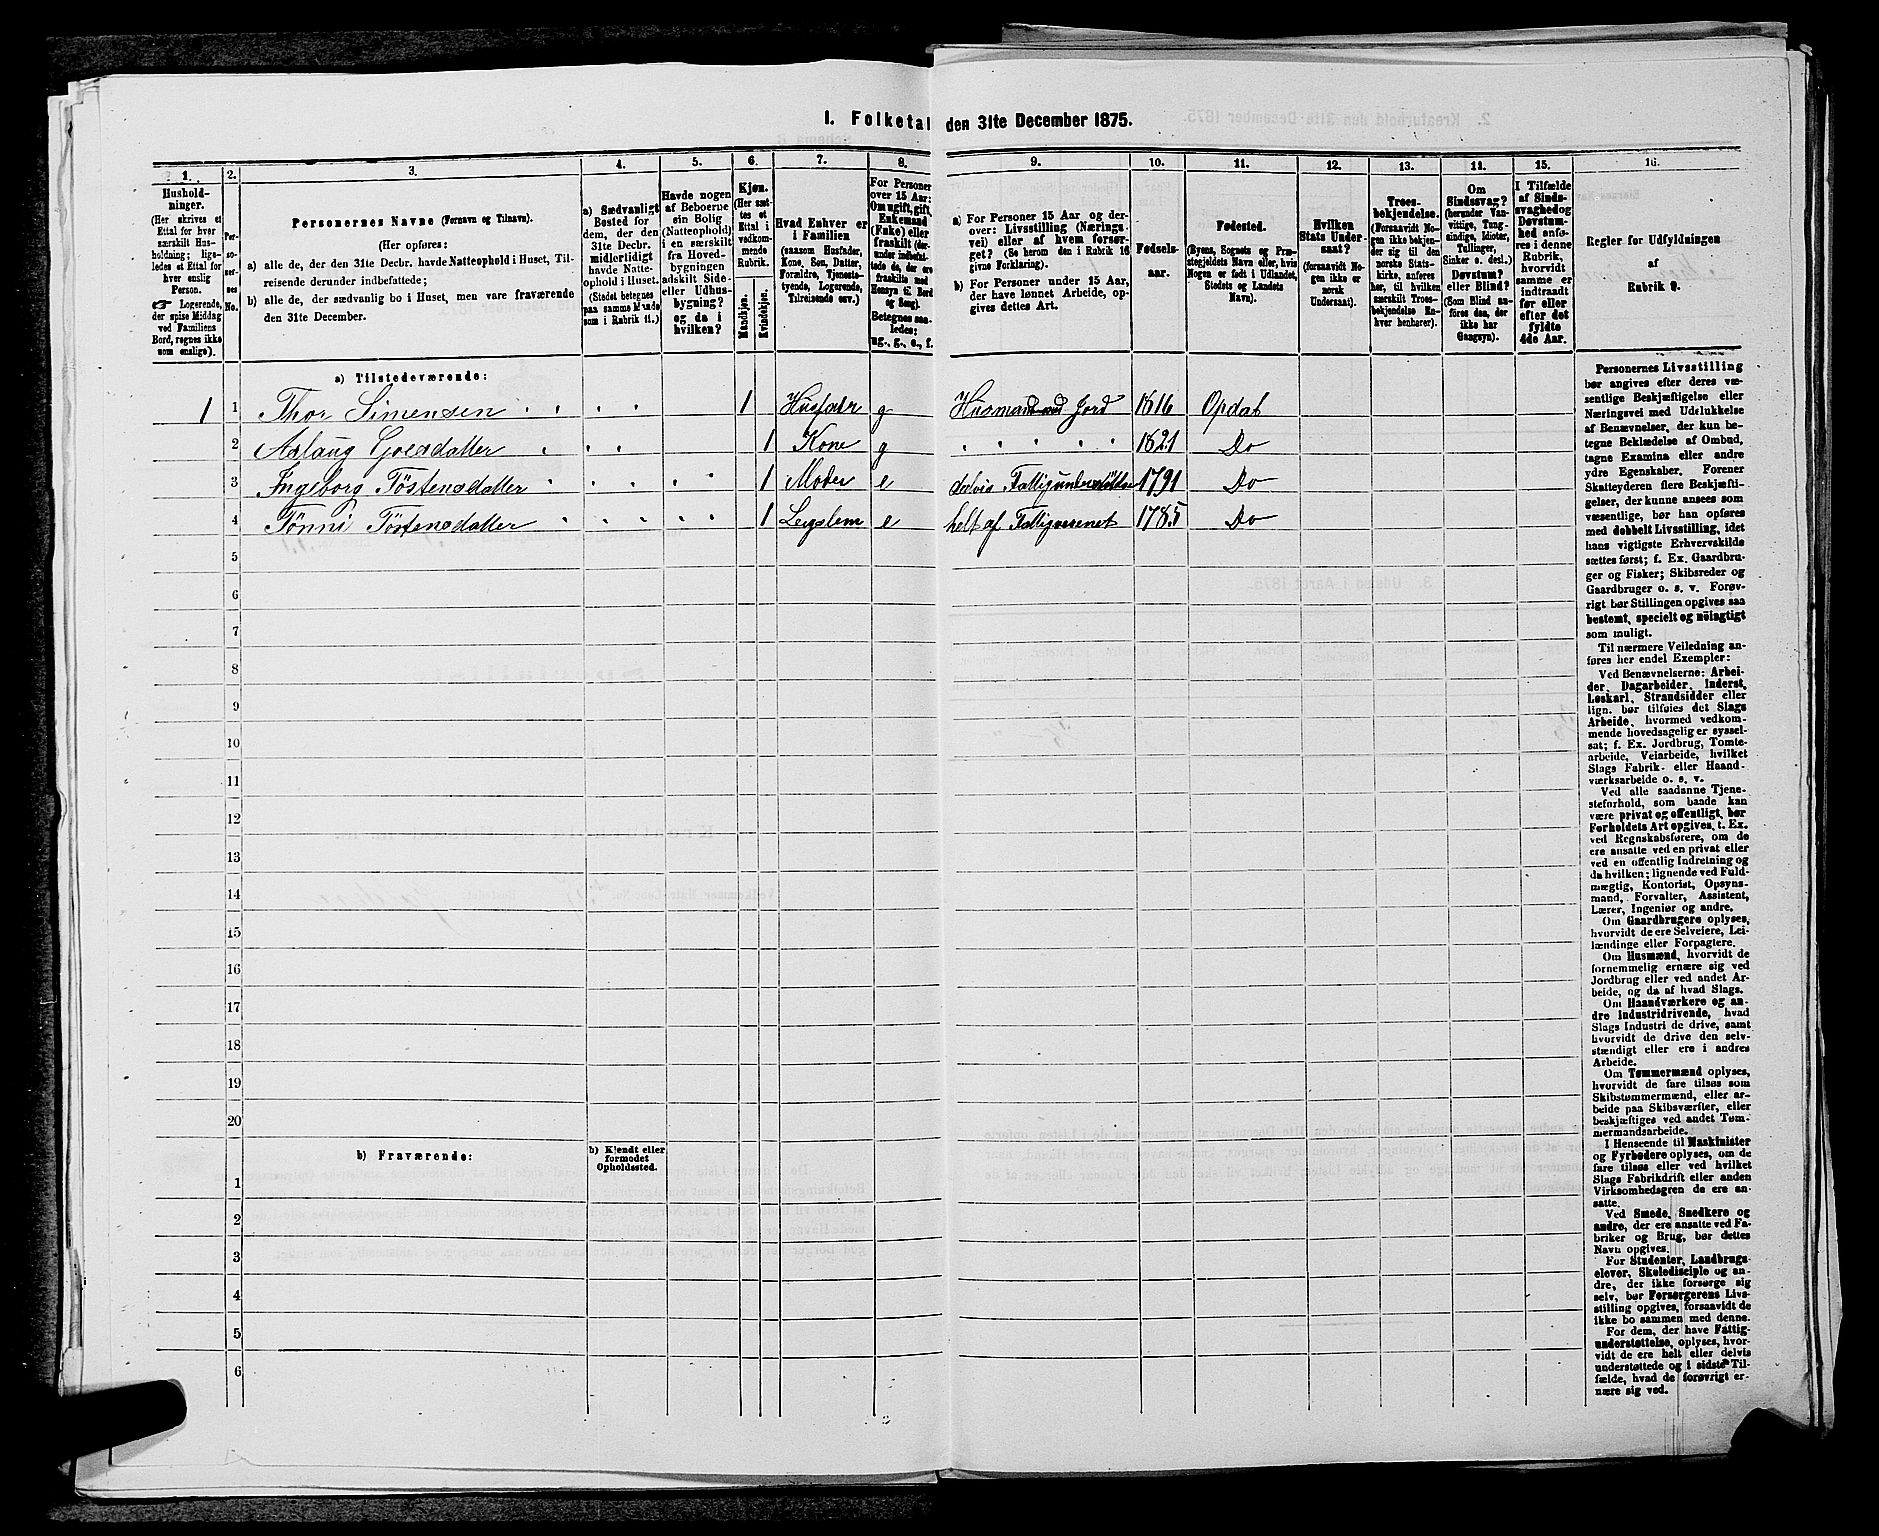 1. Folketal den 31te December 1875.
1. 2. 3. 4. 5. 6. 7. 8. 9. 10. 11. 12. 13. 14. 15. 16.
Hushold-
ninger.
(Her skrives et
Ettal for hver
særskilt Hus-
holdning; lige-
ledes et Ettal for
hver enslig
Person.
☞ Logerende,
der spise Middag
ved Familiens
Bord, regnes ikke
som enslige).
Per-
so-
ner-
nes
No.
Personernes Navne (Fornavn og Tilnavn).
(Her opføres:
a) alle de, der den 31te Decbr. havde Natteophold i Huset, Til-
reisende derunder indbefattede;
b) alle de, der sædvanlig bo i Huset, men vare fraværende
den 31te December.
a) Sædvanligt
Bosted for
dem, der den
31te Decbr.
midlertidigt
havde Natte-
ophold i Huset.
(Stedet betegnes
paa samme Maade
som i Rubrik 11.)
Havde nogen
af Beboerne
sin Bolig
(Natteophold)
i en særskilt
fra Hoved-
bygningen
adskilt Side-
eller Udhus-
bygning?
og da i
hvilken?
Kjøn.
(Her sæt-
tes et
Ettal i
vedkom-
mende
Rubrik.
Mandkjøn.
Kvindekjøn.
Hvad Enhver er
i Familien
(saasom Husfader,
Kone, Søn, Datter,
Forældre, Tjeneste-
tyende, Logerende,
Tilreisende osv.)
For Personer
over 15 Aar:
Om ugift, gift,
Enkemand
(Enke) eller
fraskilt (der-
under indbefat-
tede de, der ere
fraskilte med
Hensyn til Bord
og Seng).
Betegnes saa-
ledes:
ug., g., e., f.
a) For Personer 15 Aar og der-
over: Livsstilling (Nærings-
vei) eller af hvem forsør-
get? (Se herom den i Rubrik 16
givne Forklaring).
b) For Personer under 15 Aar,
der have lønnet Arbeide, op-
gives dettes Art.
Fødsels-
aar.
Fødested.
(Byens, Sognets og Præ-
stegjeldets Navn eller, hvis
Nogen er født i Udlandet,
Stedets og Landets
Navn).
Hvilken
Stats Under-
saat?
(forsaavidt No-
gen ikke er
norsk
Undersaat).
Troes-
bekjendelse.
(Forsaavidt No-
gen ikke bekjen-
der sig til den
norske Stats-
kirke, anføres
her, til hvilken
særskilt Troes-
bekjendelse En-
hver henhører).
Om
Sindssvag?
(herunder Van-
vittige, Tung-
sindige, Idioter,
Tullinger,
Sinker o. desl.)
Døvstum?
eller Blind?
(Som Blind an-
føres den, der
ikke har
Gangsyn).
I Tilfælde
af Sinds-
svaghed og
Døvstum-
hed anfø-
res i denne
Rubrik,
hvorvidt
samme er
indtraadt
før eller
efter det
fyldte
4de Aar.
Regler for Udfyldningen
af
Rubrik 9.
a) Tilstedeværende:
1 1 Thor Simensen 1 Husfader g Husmand med Jord 1816 Opdal
2 Aslaug Golsdatter 1 Kone g 1821 Do
3 Ingeborg Töstensdatter 1 Moder e delvis Fattigunderstöttelse 1791 Do
4 Tönni Töstensdatter 1 Lægslem e helt af Fattigvæsenet 1785 Do
5
6
7
8
9
10
11
12
13
14
15
16
17
18
19
20
b) Fraværende:
b) Kjendt eller
formodet
Opholdssted.
1
2
3
4
5
6
Personernes Livsstilling
bør angives efter deres væ-
sentlige Beskjæftigelse eller
Næringsvei med Udelukkelse
af Benævnelser, der kun be-
tegne Beklædelse af Ombud,
tagne Examina eller andre
ydre Egenskaber. Forener
Skatteyderen flere Beskjæfti-
gelser, der kunne ansees som
væsentlige, bør han opføres
med dobbelt Livsstilling, idet
hans vigtigste Erhvervskilde
sættes først; f. Ex. Gaardbru-
ger og Fisker; Skibsreder og
Gaardbruger o. s. v. Forøv-
rigt bør Stillingen opgives saa
bestemt, specielt og nøiagtigt
som muligt.
Til nærmere Veiledning an-
føres her endel Exempler:
Ved Benævnelserne: Arbei-
der, Dagarbeider, Inderst,
Løskarl, Strandsidder eller
lign. bør tilføies det Slags
Arbeide, hvormed vedkom-
mende hovedsagelig er syssel-
sat; f. Ex. Jordbrug, Tomte-
arbeide, Veiarbeide, hvilket
Slags Fabrik- eller Haand-
værksarbeide o. s. v.
Ved alle saadanne Tjene-
steforhold, som baade kan
være privat og offentligt, bør
Forholdets Art opgives, t. Ex.
ved Regnskabsførere, om de
ere ansatte ved en privat eller
ved en offentlig Indretning og
da hvilken; lignende ved Fuld-
mægtig, Kontorist, Opsyns-
mand, Forvalter, Assistent,
Lærer, Ingeniør og andre.
Om Gaardbrugere oplyses,
hvorvidt de ere Selveiere, Lei-
lændinge eller Forpagtere.
Om Husmænd, hvorvidt de
fornemmelig ernære sig ved
Jordbrug eller ved andet Ar-
beide, og da af hvad Slags.
Om Haandværkere og an-
dre industridrivende, hvad
Slags Industri de drive, samt
hvorvidt de drive den selv-
stændigt eller ere i andres
Arbeide.
Om Tømmermænd oplyses,
hvorvidt de fare tilsøs som
Skibstømmermænd, eller ar-
beide paa Skibsværfter, eller
beskjæftiges ved andet Tøm-
mermandsarbeide.
I Henseende til Maskinister
og Fyrbødere oplyses, om de
fare tilsøs eller ved hvilket
Slags Fabrikdrift eller anden
Virksomhedsgren de ere an-
satte.
Ved Smede, Snedkere og
andre, der ere ansatte ved Fa-
briker og Brug, bør dettes
Navn opgives.
For Studenter, Landbrugs-
elever, Skoledisciple og an-
dre, der ikke forsørge sig
selv, bør Forsørgerens Livs-
stilling opgives, forsaavidt de
ikke bo sammen med denne.
For dem, der have Fattig-
understøttelse, oplyses, hvor-
vidt de ere helt eller delvis
understøttede og i sidste Til-
fælde, hvad de forøvrigt er-
nære sig ved.